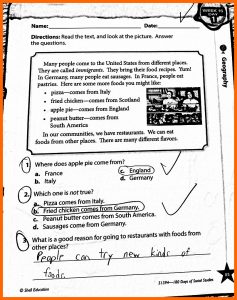 WEEK 15
Name: Date:
Directions: Read the text, and look at the picture. Answer
the questions.
Many people come to the United States from different places.
They are called immigrants. They bring their food recipes. Yum!
In Germany, many people eat sausages. In France, people eat
pastries. Here are some more foods you might like:
• pizza—comes from Italy
• fried chicken—comes from Scotland
• apple pie—comes from England
• peanut butter—comes from
South America
In our communities, we have restaurants. We can eat
foods from other places. There are many different flavors.
Geography
1. Where does apple pie come from?
a. France c. England
b. Italy d. Germany
2. Which one is not true?
a. Pizza comes from Italy.
b. Fried chicken comes from Germany.
c. Peanut butter comes from South America.
d. Sausages come from Germany.
3. What is a good reason for going to restaurants with foods from
other places?
People can try new kinds of
foods
© Shell Education
51394—180 Days of Social Studies